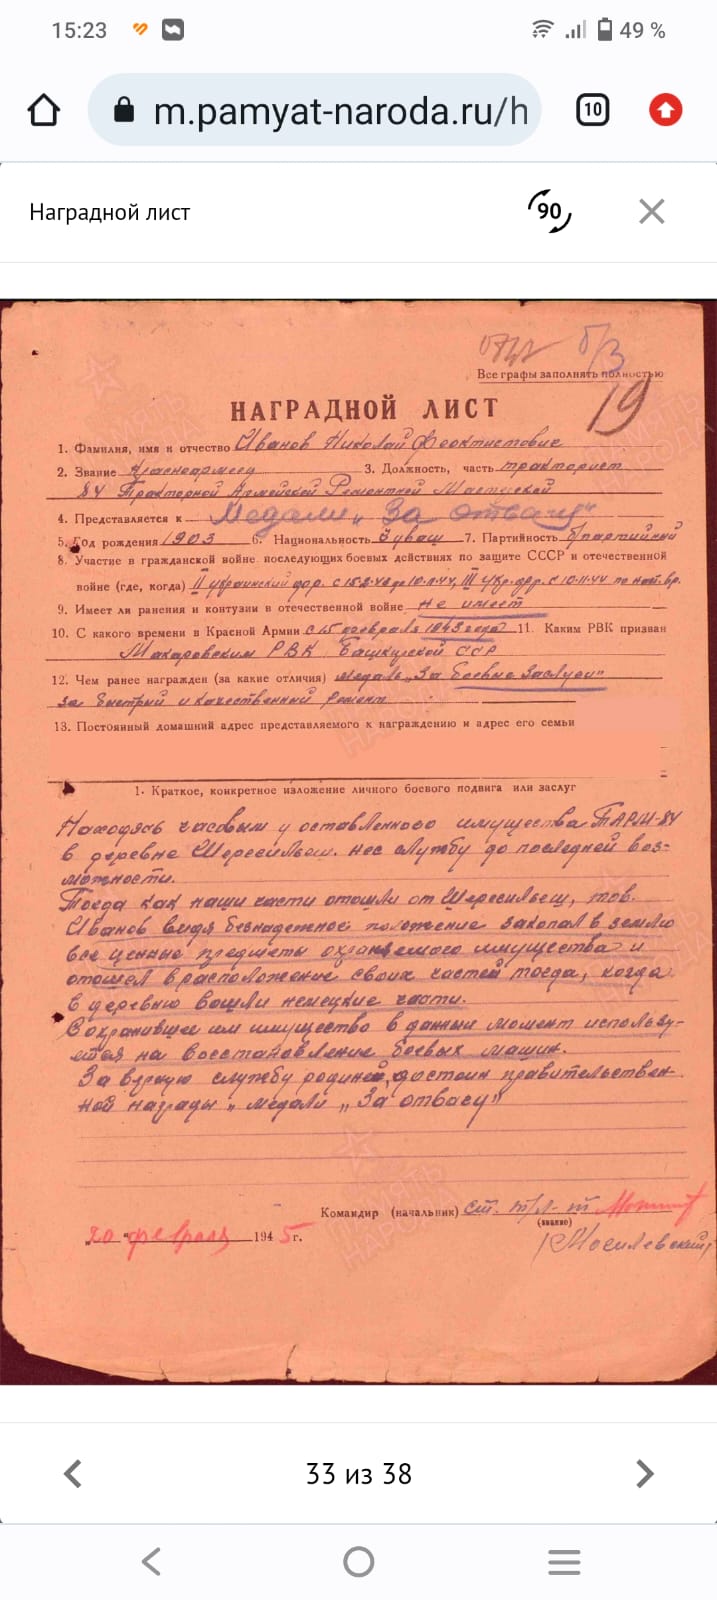 15:23
49 %
m.pamyat-naroda.ru/h
10
Наградной лист
90
Б/З
Все графы заполнять полностью
19
НАГРАДНОЙ ЛИСТ
1. Фамилия, имя и отчество Иванов Николай Феоктистович
2. Звание Красноармеец 3. Должность, часть тракторист
84 Тракторной Армейской Ремонтной Мастерской
4. Представляется к Медали „За отвагу"
5. Год рождения 1903 6. Национальность Чуваш 7. Партийность б/партийный
8. Участие в гражданской войне, последующих боевых действиях по защите СССР и отечественной
войне (где, когда) II украинский фр. с 15.2.43 до 10.11.44, III Укр. фр. с 10.11.44 по наст. вр.
9. Имеет ли ранения и контузии в отечественной войне не имеет
10. С какого времени в Красной Армии с 15 февраля 1943 года 11. Каким РВК призван
Макаровским РВК Башкирской ССР
12. Чем ранее награжден (за какие отличия) медаль „За боевые заслуги"
за быстрый и качественный ремонт
13. Постоянный домашний адрес представляемого к награждению и адрес его семьи
1. Краткое, конкретное изложение личного боевого подвига или заслуг
Находясь часовым у оставленного имущества ТАРМ-84
в деревне Шерегильеш. нес службу до последней воз-
можности.
Тогда как наши части отошли от Шерегильеш, тов.
Иванов видя безнадежное положение закопал в землю
все ценные предметы охраняемого имущества и
отошел в расположение своих частей тогда, когда
в деревню вошли немецкие части.
Сохранившее им имущество в данный момент использу-
ется на восстановление боевых машин.
За верную службу родине, достоин правительствен-
ной награды „ медали „За отвагу"
Командир (начальник) ст. т/л-т
(звание)
20 „февраля 1945 г.
Могилевский
33 из 38